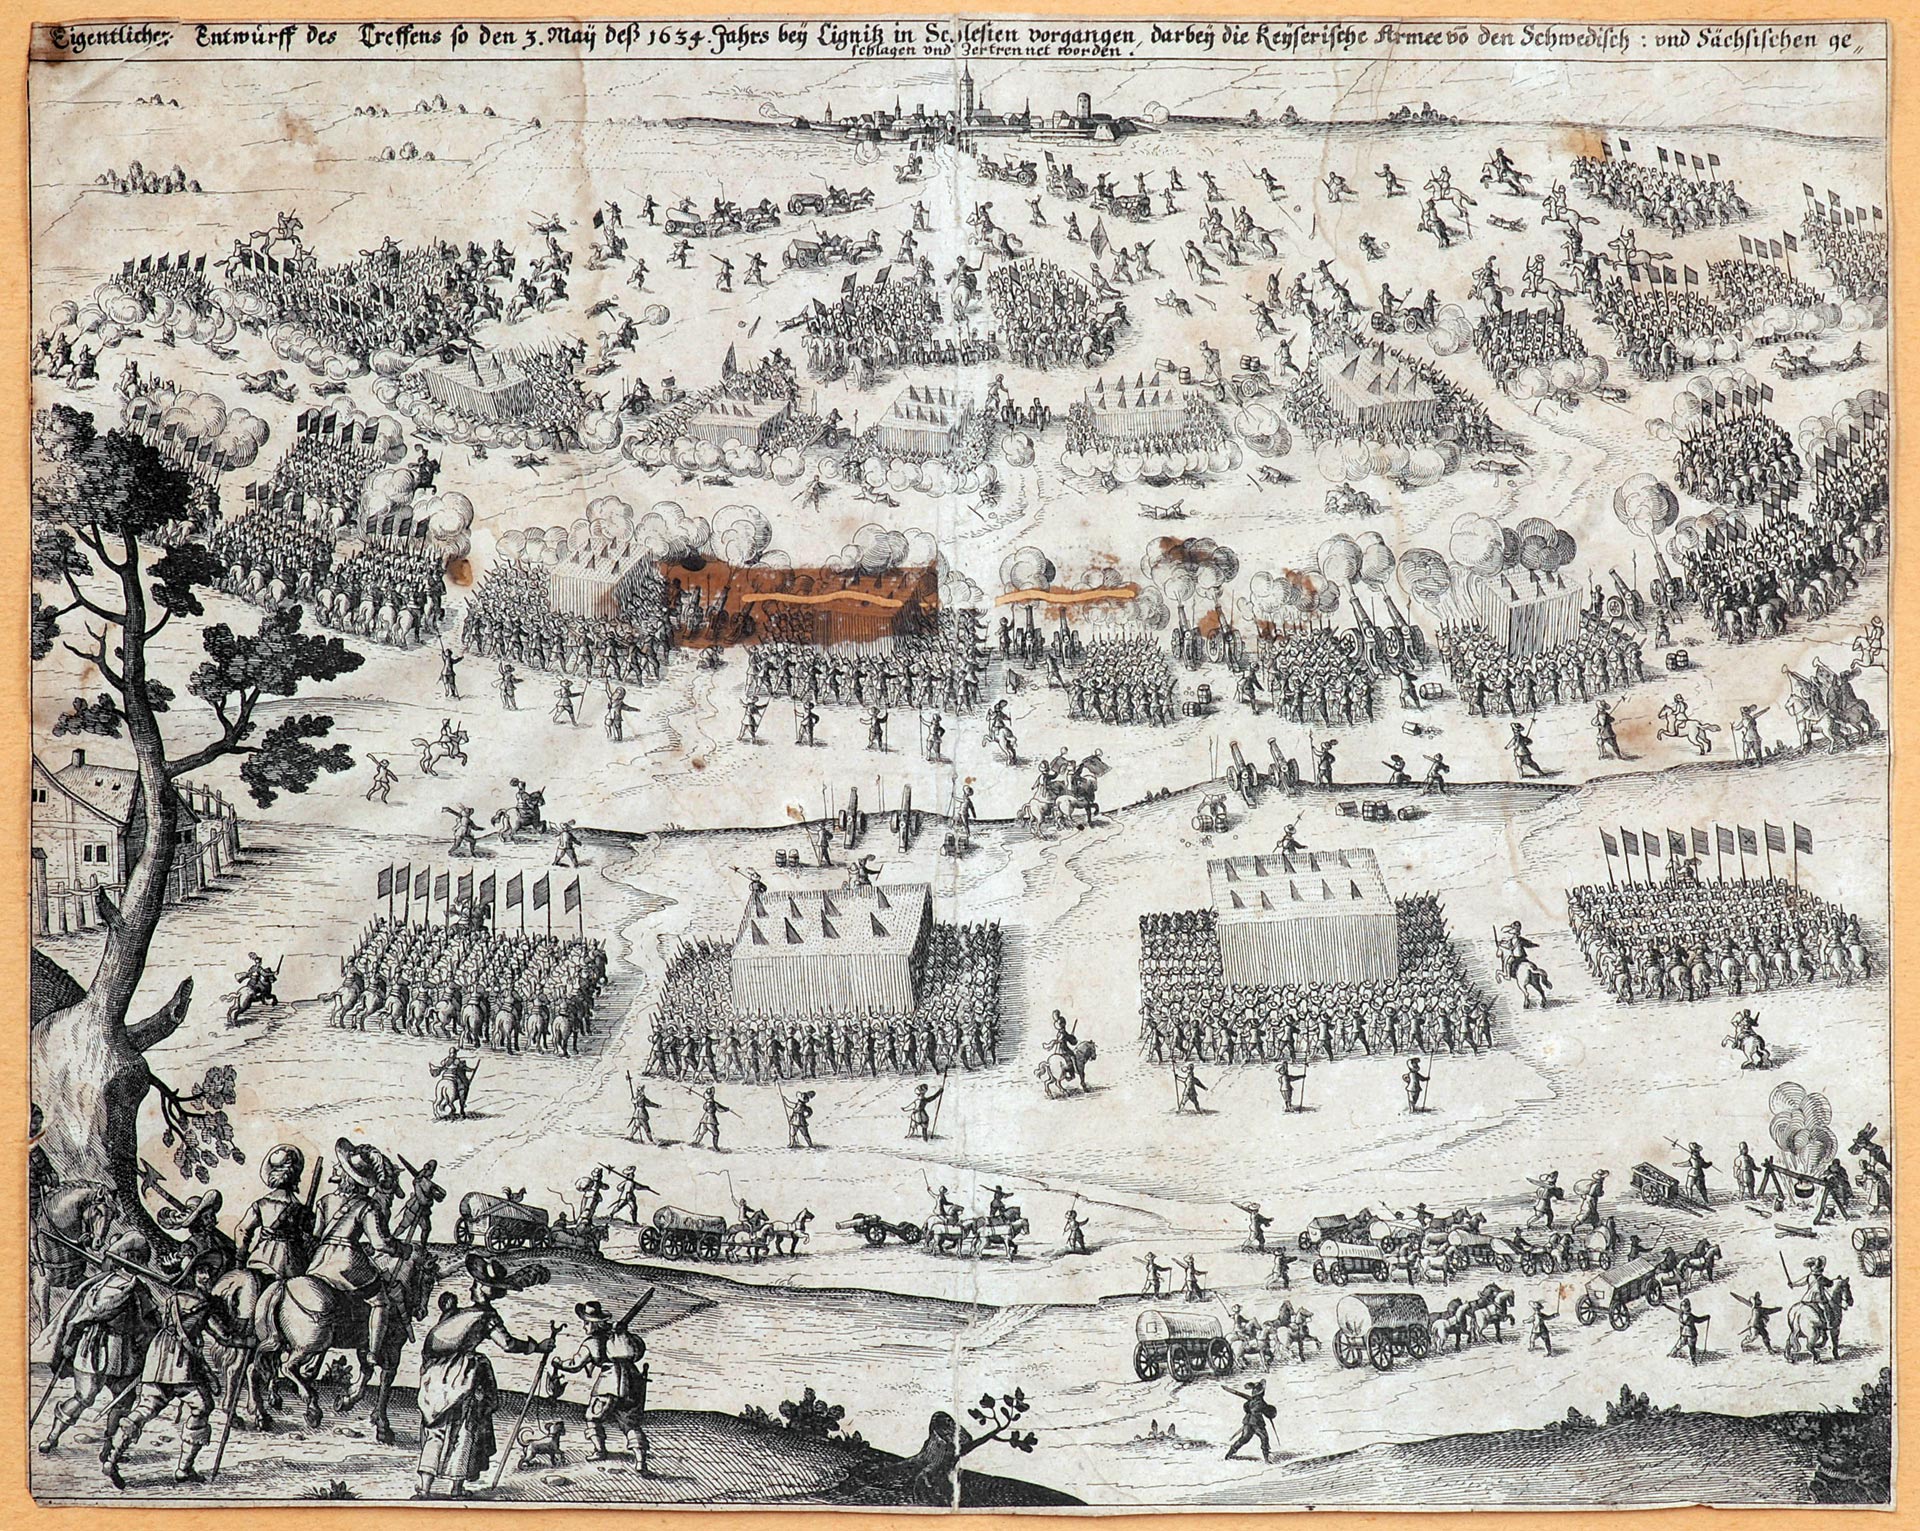 Eigentlicher Entwurff des Treffens so den 3. Maÿ deß 1634. Jahrs beÿ Lignitz in Schlesien vorgangen, darbeÿ die Keÿserische Armee võ den Schwedisch: und Sächsischen ge„
schlagen und Zertrennet worden.